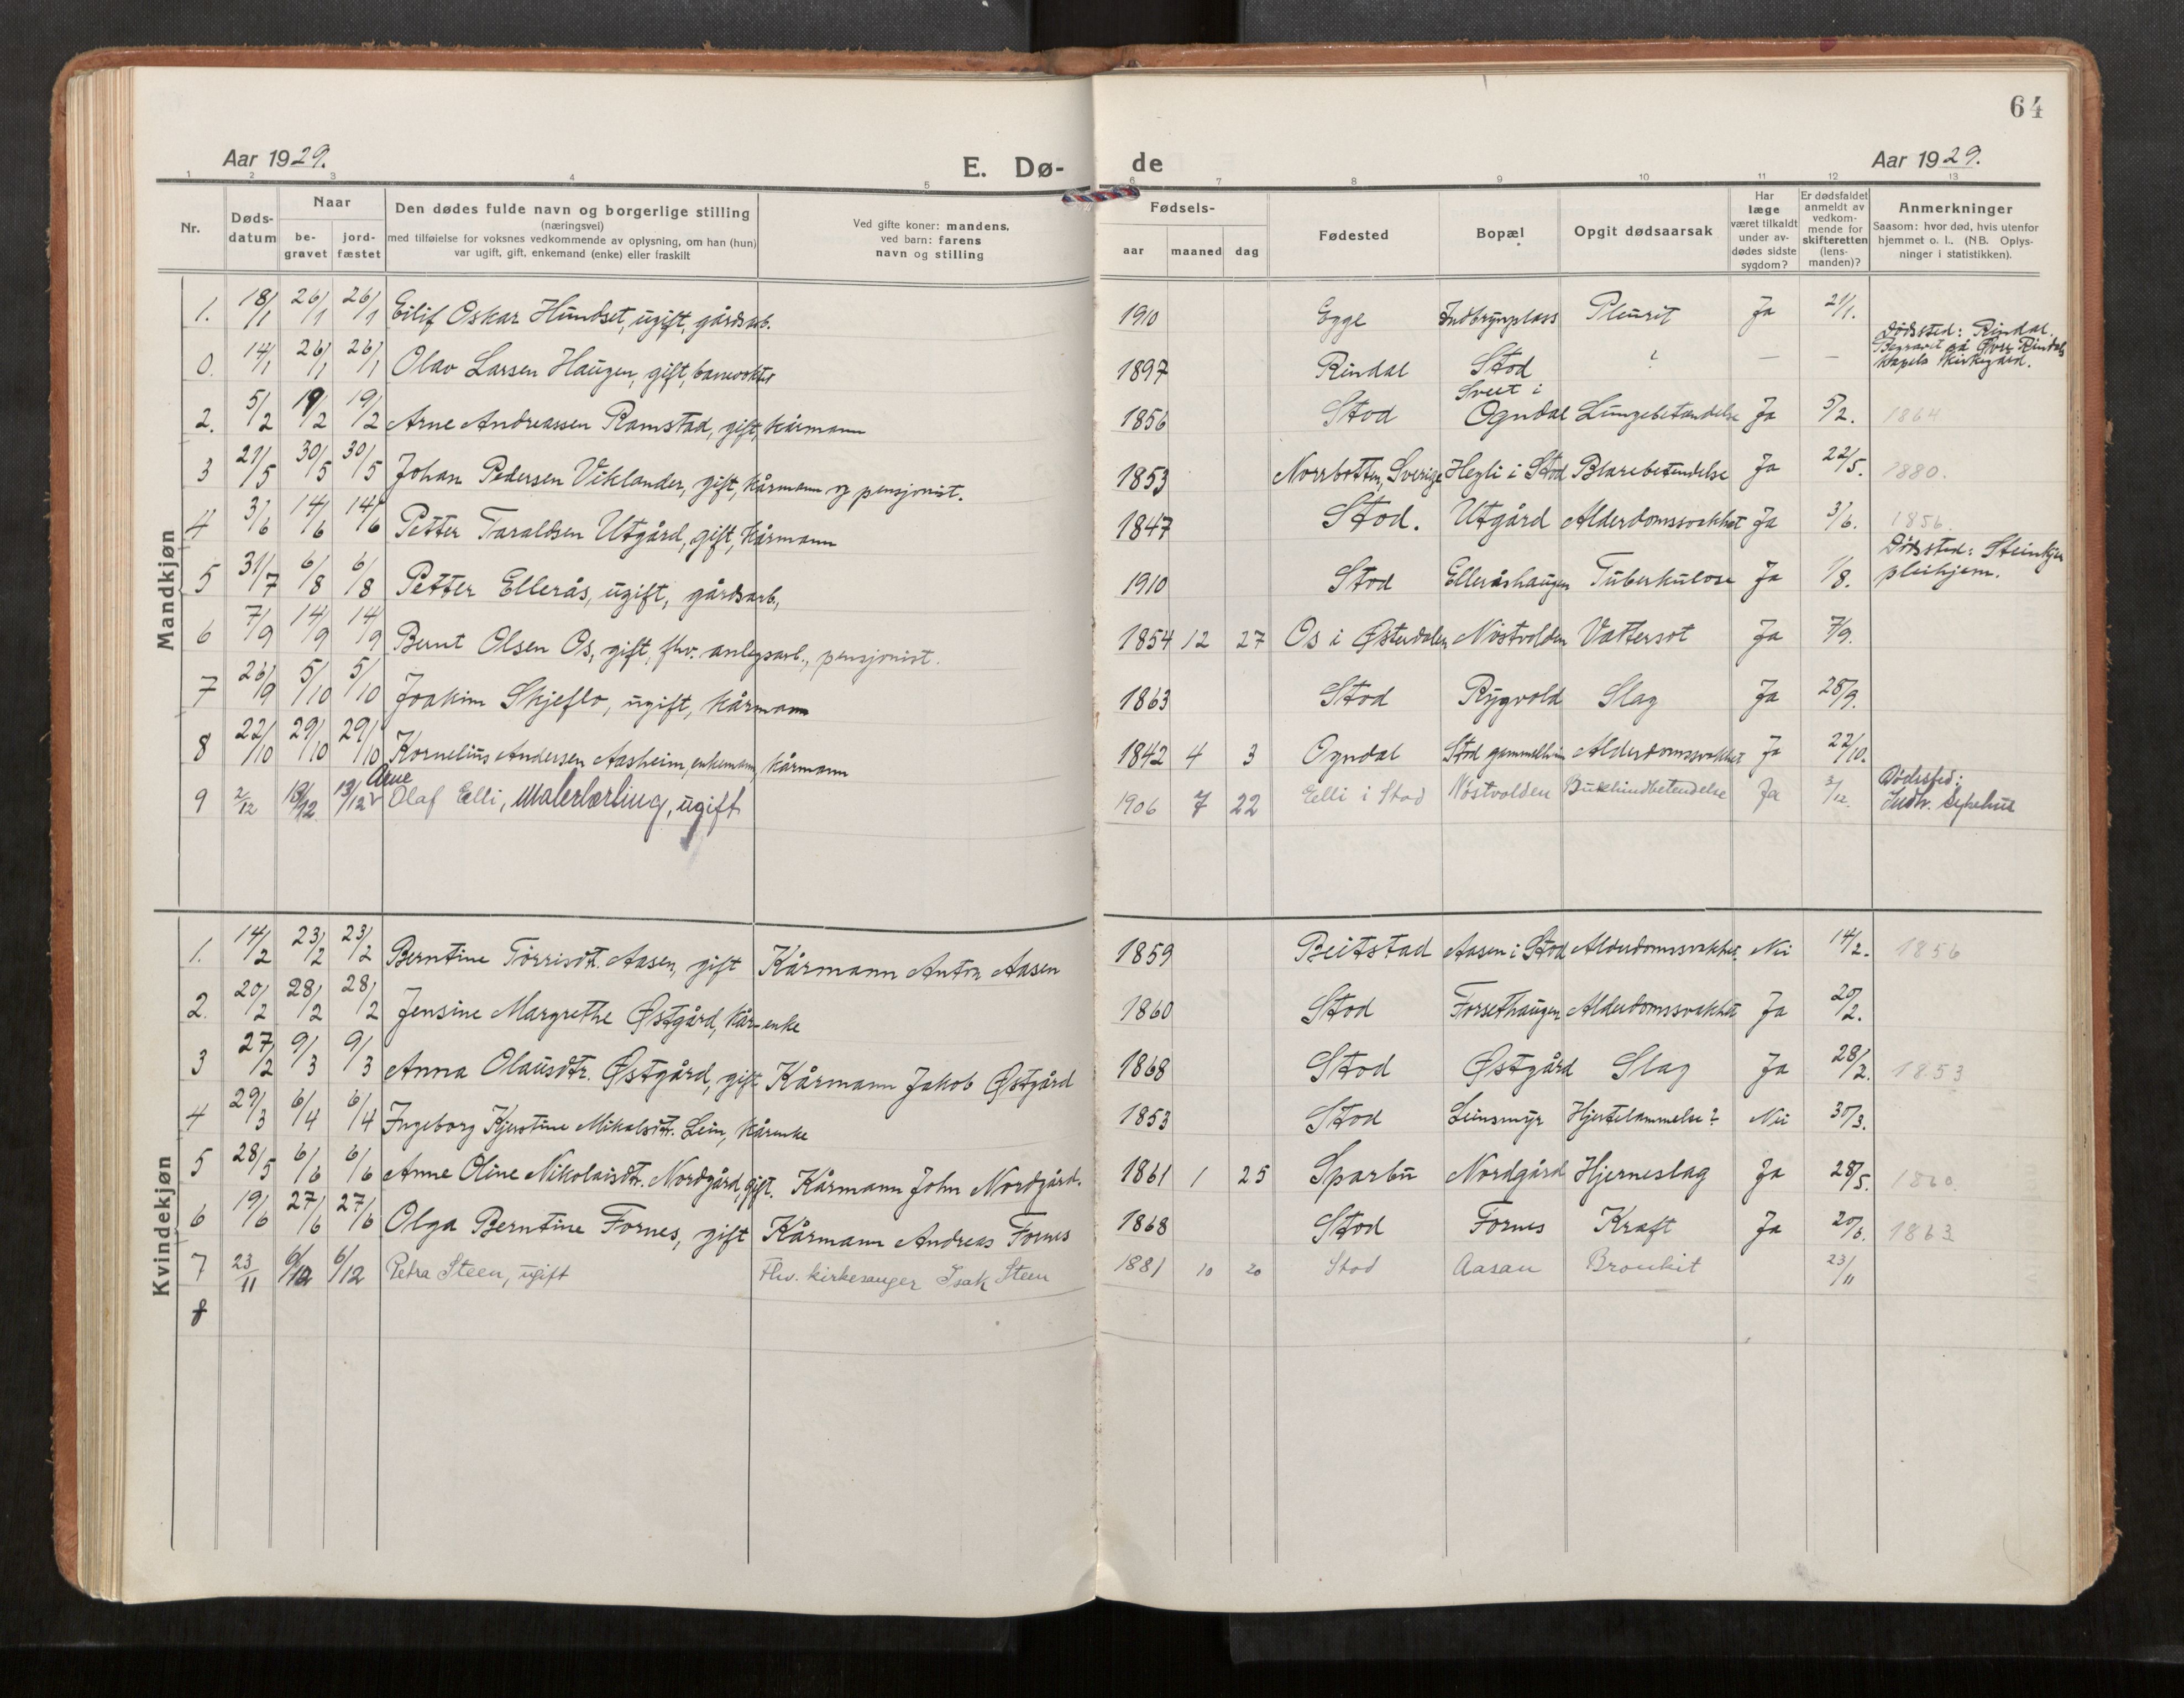 64
Aar 1929.
E. Dø-
de
Aar 1929.
1 2 3 4 5 6 7 8 9 10 11 12 13
Nr.
Døds-
datum
Naar
be-
gravet
jord-
fæstet
Den dødes fulde navn og borgerlige stilling
(næringsvei)
med tilføielse for voksnes vedkommende av oplysning, om han (hun)
var ugift, gift, enkemand (enke) eller fraskilt
Ved gifte koner: mandens,
ved barn: farens
navn og stilling
Fødsels-
aar maaned dag
Fødested
Bopæl
Opgit dødsaarsak
Har
læge
været tilkaldt
under av-
dødes sidste
sygdom?
Er dødsfaldet
anmeldt av
vedkom-
mende for
skifteretten
(lens-
manden)?
Anmerkninger
Saasom: hvor død, hvis utenfor
hjemmet o. l.. (NB. Oplys-
ninger i statistikken).
Mandkjøn
1. 18/1 26/1 26/1 Eilif Oskar Hundset, ugift, gårdsarb. 1910 Egge Indbrynplass Pleurit Ja 21/1.
0. 14/1 26/1 26/1 Olav Larsen Haugen, gift, banevokter 1897 Rindal Stod ? — — Dødssted: Rindal.
Begravet på Øvre Rindals
kapels kirkegård.
2. 5/2 19/2 19/2 Arne Andreassen Ramstad, gift, kårmann 1856 Stod Sveet i
Ogndal Lungebetændelse Ja 5/2. 1864
3 21/5 30/5 30/5 Johan Pedersen Viklander, gift, kårmann og pensjonist. 1853 Norrbotten, Sverige Hegli i Stod Blærebetendelse Ja 22/5. 1880.
4 3/6 14/6 14/6 Petter Taraldsen Utgård, gift, kårmann 1847 Stod. Utgård Alderdomssvakhet Ja 3/6. 1856.
5 31/7 6/8 6/8 Petter Ellerås, ugift, gårdsarb. 1910 Stod Elleråshaugen Tuberkulose Ja 1/8. Dødssted: Steinkjer
pleihjem.
6 7/9 14/9 14/9 Bernt Olsen Os, gift, fhv. anlegsarb., pensjonist. 1854 12 27 Os i Østerdalen Nøstvolden Vattersot Ja 7/9.
7 26/9 5/10 5/10 Joakim Skjeflo, ugift, kårmann 1863 Stod Rygvold Slag Ja 28/9.
8 22/10 29/10 29/10 Kornelius Andersen Aasheim, enkemann, kårmann 1842 4 3 Ogndal Stod gammelheim Alderdomssvakhet Ja 22/10.
9 2/12 13/12 13/12 Arne
Olaf Eelli, Malerlærling, ugift 1906 7 22 Eelli i Stod Nøstvolden Bukhindbetendelse Ja 3/12. Dødssted:
Indh. sykehus
Kvindekjøn
1. 14/2 23/2 23/2 Berntine Torrisdtr. Aasen, gift Kårmann Anton Aasen 1859 Beitstad Aasen i Stod Alderdomssvakhet Nei 14/2. 1856
2. 20/2 28/2 28/2 Jensine Margrethe Østgård, kårenke 1860 Stod Forsethaugen Alderdomssvakhet Ja 20/2.
3 27/2 9/3 9/3 Anna Olausdtr. Østgård, gift Kårmann Jakob Østgård 1868 Stod Østgård Slag Ja 28/2. 1853
4 29/3 6/4 6/4 Ingeborg Kjerstine Mikalsdtr. Lein, kårenke 1853 Stod Leinsmyr Hjertelammelse? Nei 30/3.
5 28/5 6/6 6/6 Anne Oline Nikolaisdtr. Nordgård, gift. Kårmann John Nordgård. 1861 1 25 Sparbu Nordgård Hjerneslag Ja 28/5. 1860.
6 19/6 27/6 27/6 Olga Berntine Fornes, gift Kårmann Andreas Fornes 1868 Stod Fornes Kræft Ja 20/6. 1863
7 23/11 6/12 6/12 Petra Steen, ugift Fhv. kirkesanger Isak Steen 1881 10 20 Stod Aasan Bronkit 23/11
8